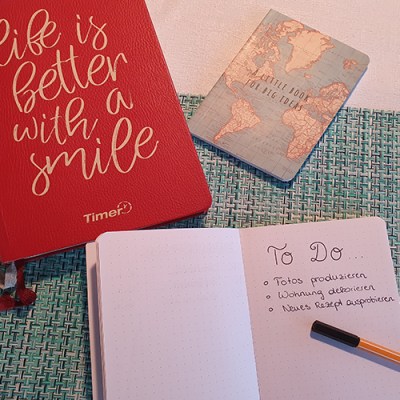 life is
better
with a
smile
Timer
A LITTLE BOOK
FOR BIG IDEAS
To Do...
Fotos produzieren
Wohnung dekorieren
Neues Rezept ausprobieren